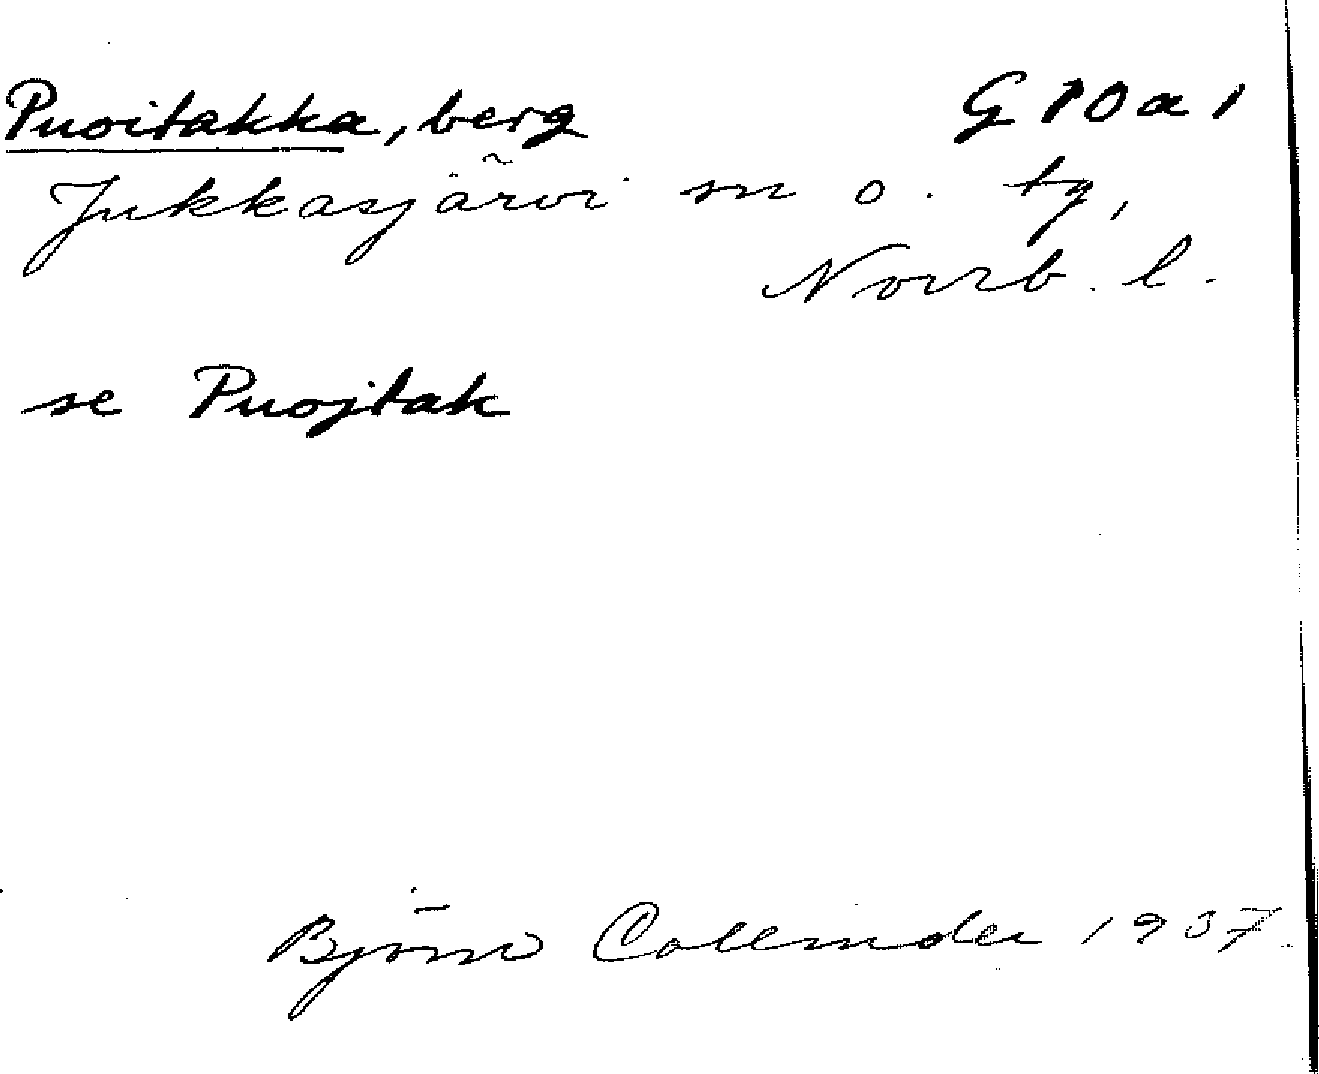 Puoitakka, berg G 10 a 1
Jukkasjärvi sn o. tg,
Norrb. l.
se Puojtak
Björn Collinder 1937.